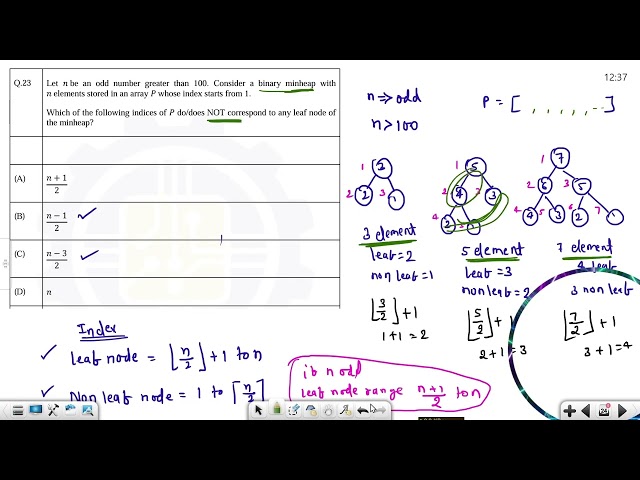 12:37
Q.23 Let n be an odd number greater than 100. Consider a binary minheap with
n elements stored in an array P whose index starts from 1.
Which of the following indices of P do/does NOT correspond to any leaf node of
the minheap?
(A) n + 1 / 2
(B) n − 1 / 2 ✓
(C) n − 3 / 2 ✓
(D) n
n => odd
n > 100
P = [ , , , , , -- ]
1 2
2 2 3 1
3 element
leaf = 2
non leaf = 1
⌊3/2⌋ + 1
1 + 1 = 2
1 5
2 4 3 3
4 2 5 1
5 element
leaf = 3
non leaf = 2
⌊5/2⌋ + 1
2 + 1 = 3
1 7
2 6 3 5
4 4 5 3 6 2 7 1
7 element
4 leaf
3 non leaf
⌊7/2⌋ + 1
3 + 1 = 4
Index
✓ leaf node = ⌊n/2⌋ + 1 to n
✓ Non leaf node = 1 to ⌈n/2⌉
if n odd
leaf node range n+1/2 to n
24